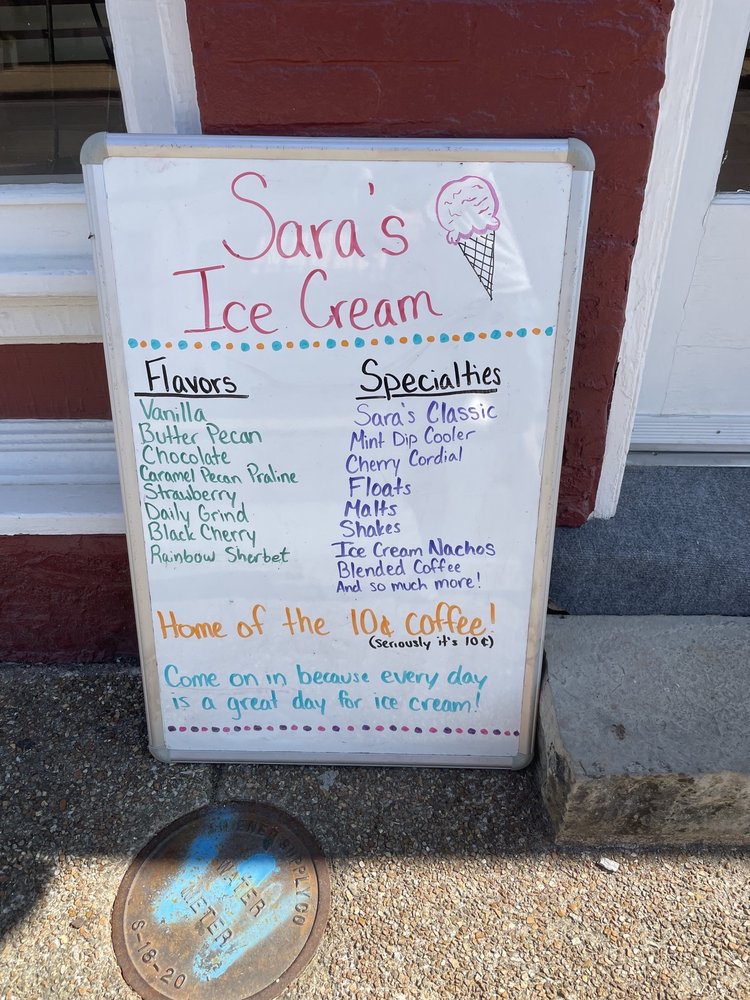 Sara's
Ice Cream
Flavors
Vanilla
Butter Pecan
Chocolate
Caramel Pecan Praline
Strawberry
Daily Grind
Black Cherry
Rainbow Sherbet
Specialties
Sara's Classic
Mint Dip Cooler
Cherry Cordial
Floats
Malts
Shakes
Ice Cream Nachos
Blended Coffee
And so much more!
Home of the 10¢ coffee!
(seriously it's 10¢)
Come on in because every day
is a great day for ice cream!
SUPPLY CO
WATER
METER
S-18-20